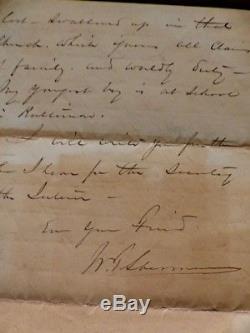 lost - swallowed up in that
Church, which ignores all claims
of family, and worldly duty -
My youngest boy is at school
in Baltimore.
I will write you further
when I hear from the Secretary
of the Interior -
Ever Your Friend
W T Sherman